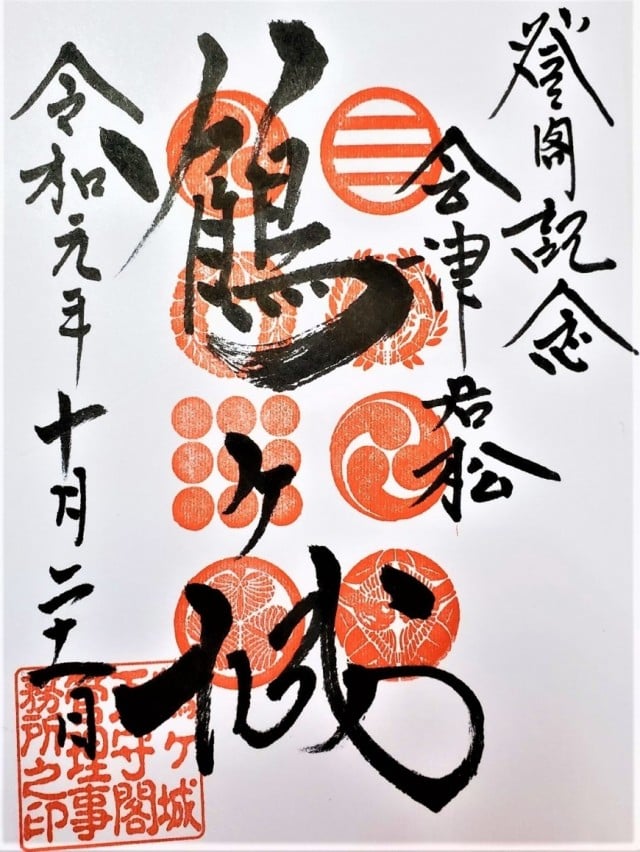 登閣記念
会津若松
鶴ヶ城
令和元年十月二十一日
鶴ヶ城
天守閣
管理事
務所之印